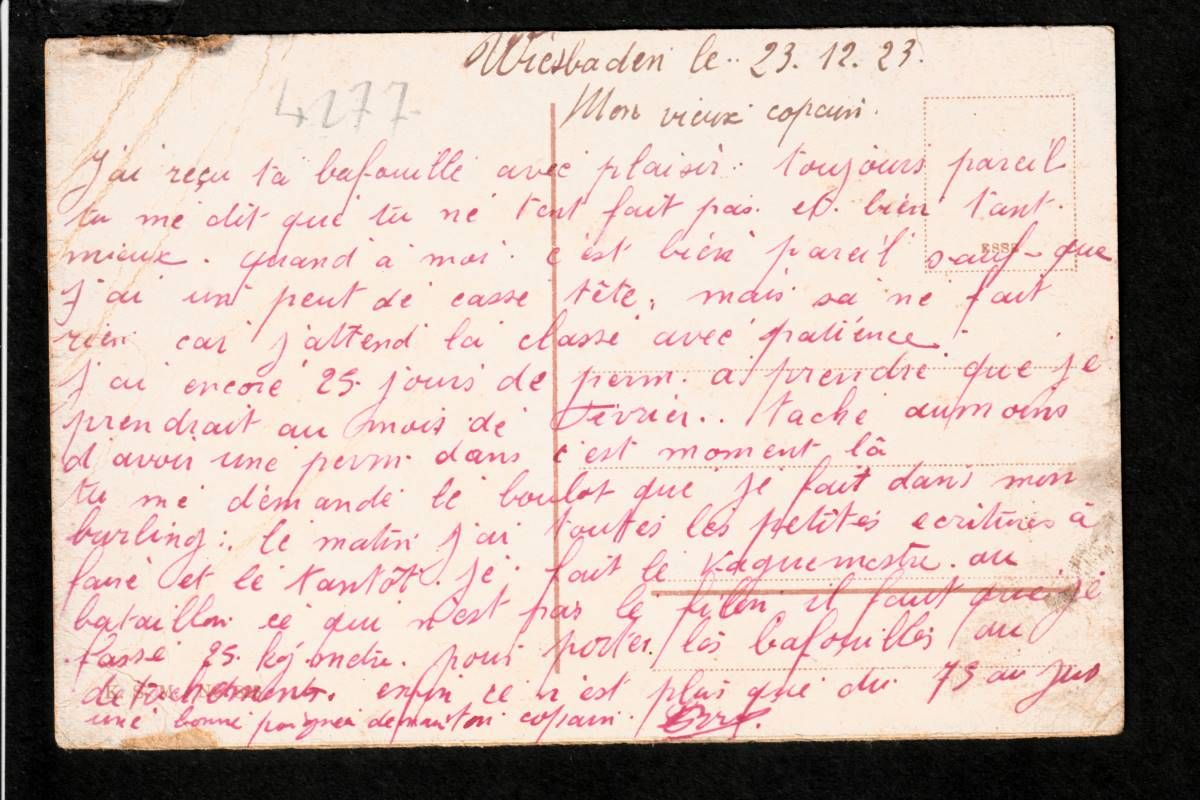 Wiesbaden le.. 23. 12. 23.
4277
Mon vieux copain.
J'ai reçu ta bafouille avec plaisir. toujours pareil
tu me dit que tu ne t'ent fait pas. et bien tant
mieux. quand à moi. c'est bien pareil sauf que
ESSE
j'ai un peut de casse tête, mais sa ne fait
rien car j'attend la classe avec patience.
J'ai encore 25. jours de perm. a prendre que je
prendrait au mois de Février.. tache aumoins
d'avoir une perm. dans c'est moment là
tu me demande le boulot que je fait dans mon
burling:. le matin j'ai toutes les petites ecritures à
faire et le tantôt. je fait le vaguemestre. au
bataillon ce qui n'est pas le filon il faut que je
fasse 25. kg. metre. pour porter les bafouilles au
detachement. enfin ce n'est plus que du 75 au jus
une bonne poignee de main ton copain.